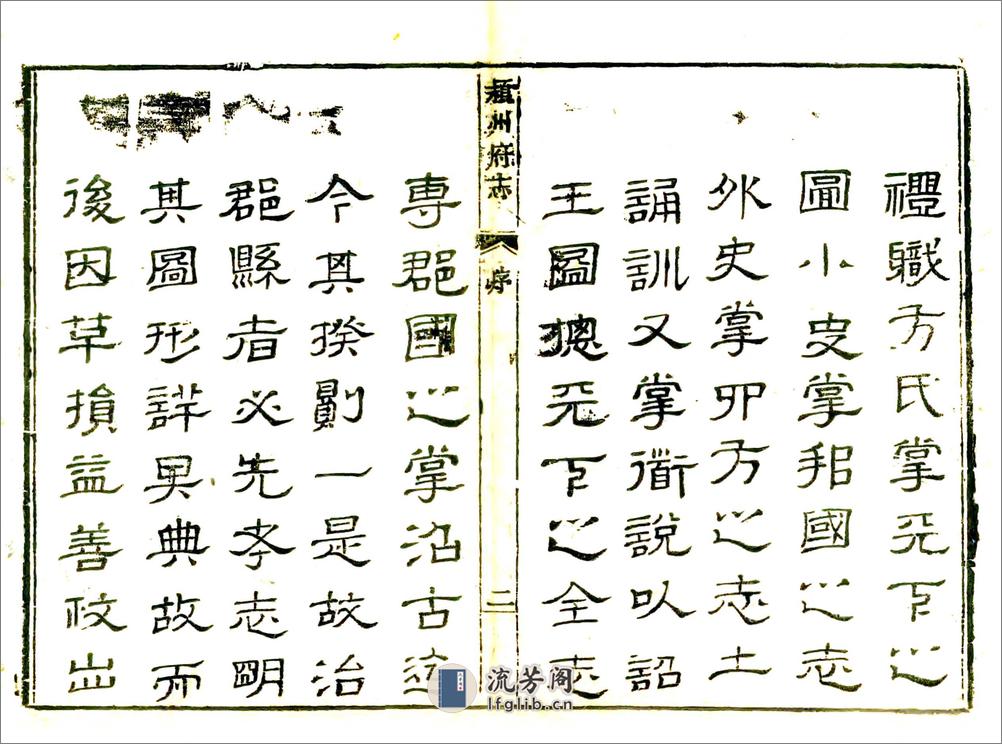 禮職方氏掌天下之
圖小史掌邦國之志
外史掌四方之志土
誦訓又掌衜說以詔
王圖總天下之全志
潁州府志 序 二
專郡國之掌沿古迄
今其揆則一是故治
郡縣者必先考志明
其圖形詳其典故而
後因革損益善政出
流芳阁
lfglib.cn